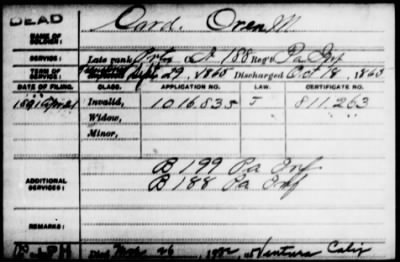 DEAD
NAME OF SOLDIER:
Card. Oren M.
SERVICE:
Late rank, Lt 188 Reg't Pa Inf
TERM OF SERVICE:
Sept 29, 1865 Discharged Oct 18, 1865
DATE OF FILING. CLASS. APPLICATION NO. LAW. CERTIFICATE NO.
1891 Apr 21 Invalid, 1016835 J 811.263
Widow,
Minor,
ADDITIONAL SERVICES:
B 199 Pa Inf
B 188 Pa Inf
REMARKS:
Died Nov 26, at Ventura Calif